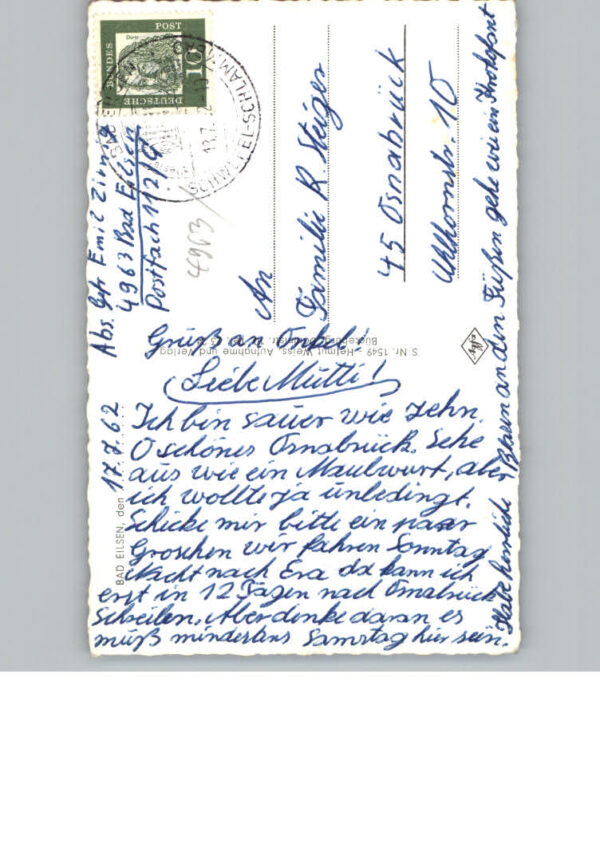 Abs. Gefr. Emil
4963 Bad Eilsen
Postfach 112/G
DEUTSCHE
BUNDES
POST
10
SCHWEFEL-SCHLAMM
17.7.
4963
An
Familie R. Steiger
45 Osnabrück
10
Gruß an Onkel!
S. Nr. 1549 - Helmut Weiss, Aufnahme und Verlag
Bückeburg
BAD EILSEN, den 17.7.62
Liebe Mutti!
Ich bin sauer wie zehn.
O schönes Osnabrück. Sehe
aus wie ein Maulwurf, aber
ich wollte ja unbedingt.
Schicke mir bitte ein paar
Groschen wir fahren Sonntag
Nacht nach da kann ich
erst in 12 Tagen nach Osnabrück
Scheiben. Aber denke daran es
muß mindestens Samstag hier sein.
Habe herrliche Blasen an den Füßen gehe wie ein